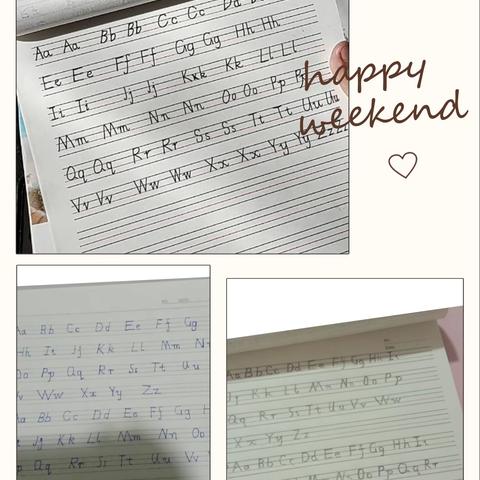 Aa Aa Bb Bb Cc Cc Dd D
Ee Ee Ff Ff Gg Gg Hh Hh
Ii Ii Jj Jj Kk Kk Ll Ll
Mm Mm Nn Nn Oo Oo Pp Pp
Qq Qq Rr Rr Ss Ss Tt Tt Uu Uu
Vv Vv Ww Ww Xx Xx Yy Yy Zz Zz
happy
weekend
Aa Bb Cc Dd Ee Ff Gg
Hh Ii Jj Kk Ll Mm N
Oo Pp Qq Rr Ss Tt Uu
v Ww Xx Yy Zz
Aa Bb Cc Dd Ee Ff Gg H
Jj Kk Ll Mm Nn Oo
Pp Qq Rr Ss Tt Uu V
Aa Bb Cc Dd Ee Ff Gg Hh Ii
Jj Kk Ll Mm Nn Oo Pp
Qq Rr Ss Tt Uu Vv Ww
Xx Yy Zz
Aa Bb Cc Dd Ee Ff Gg Hh Ii
Mm Nn Oo Pp Qq Rr